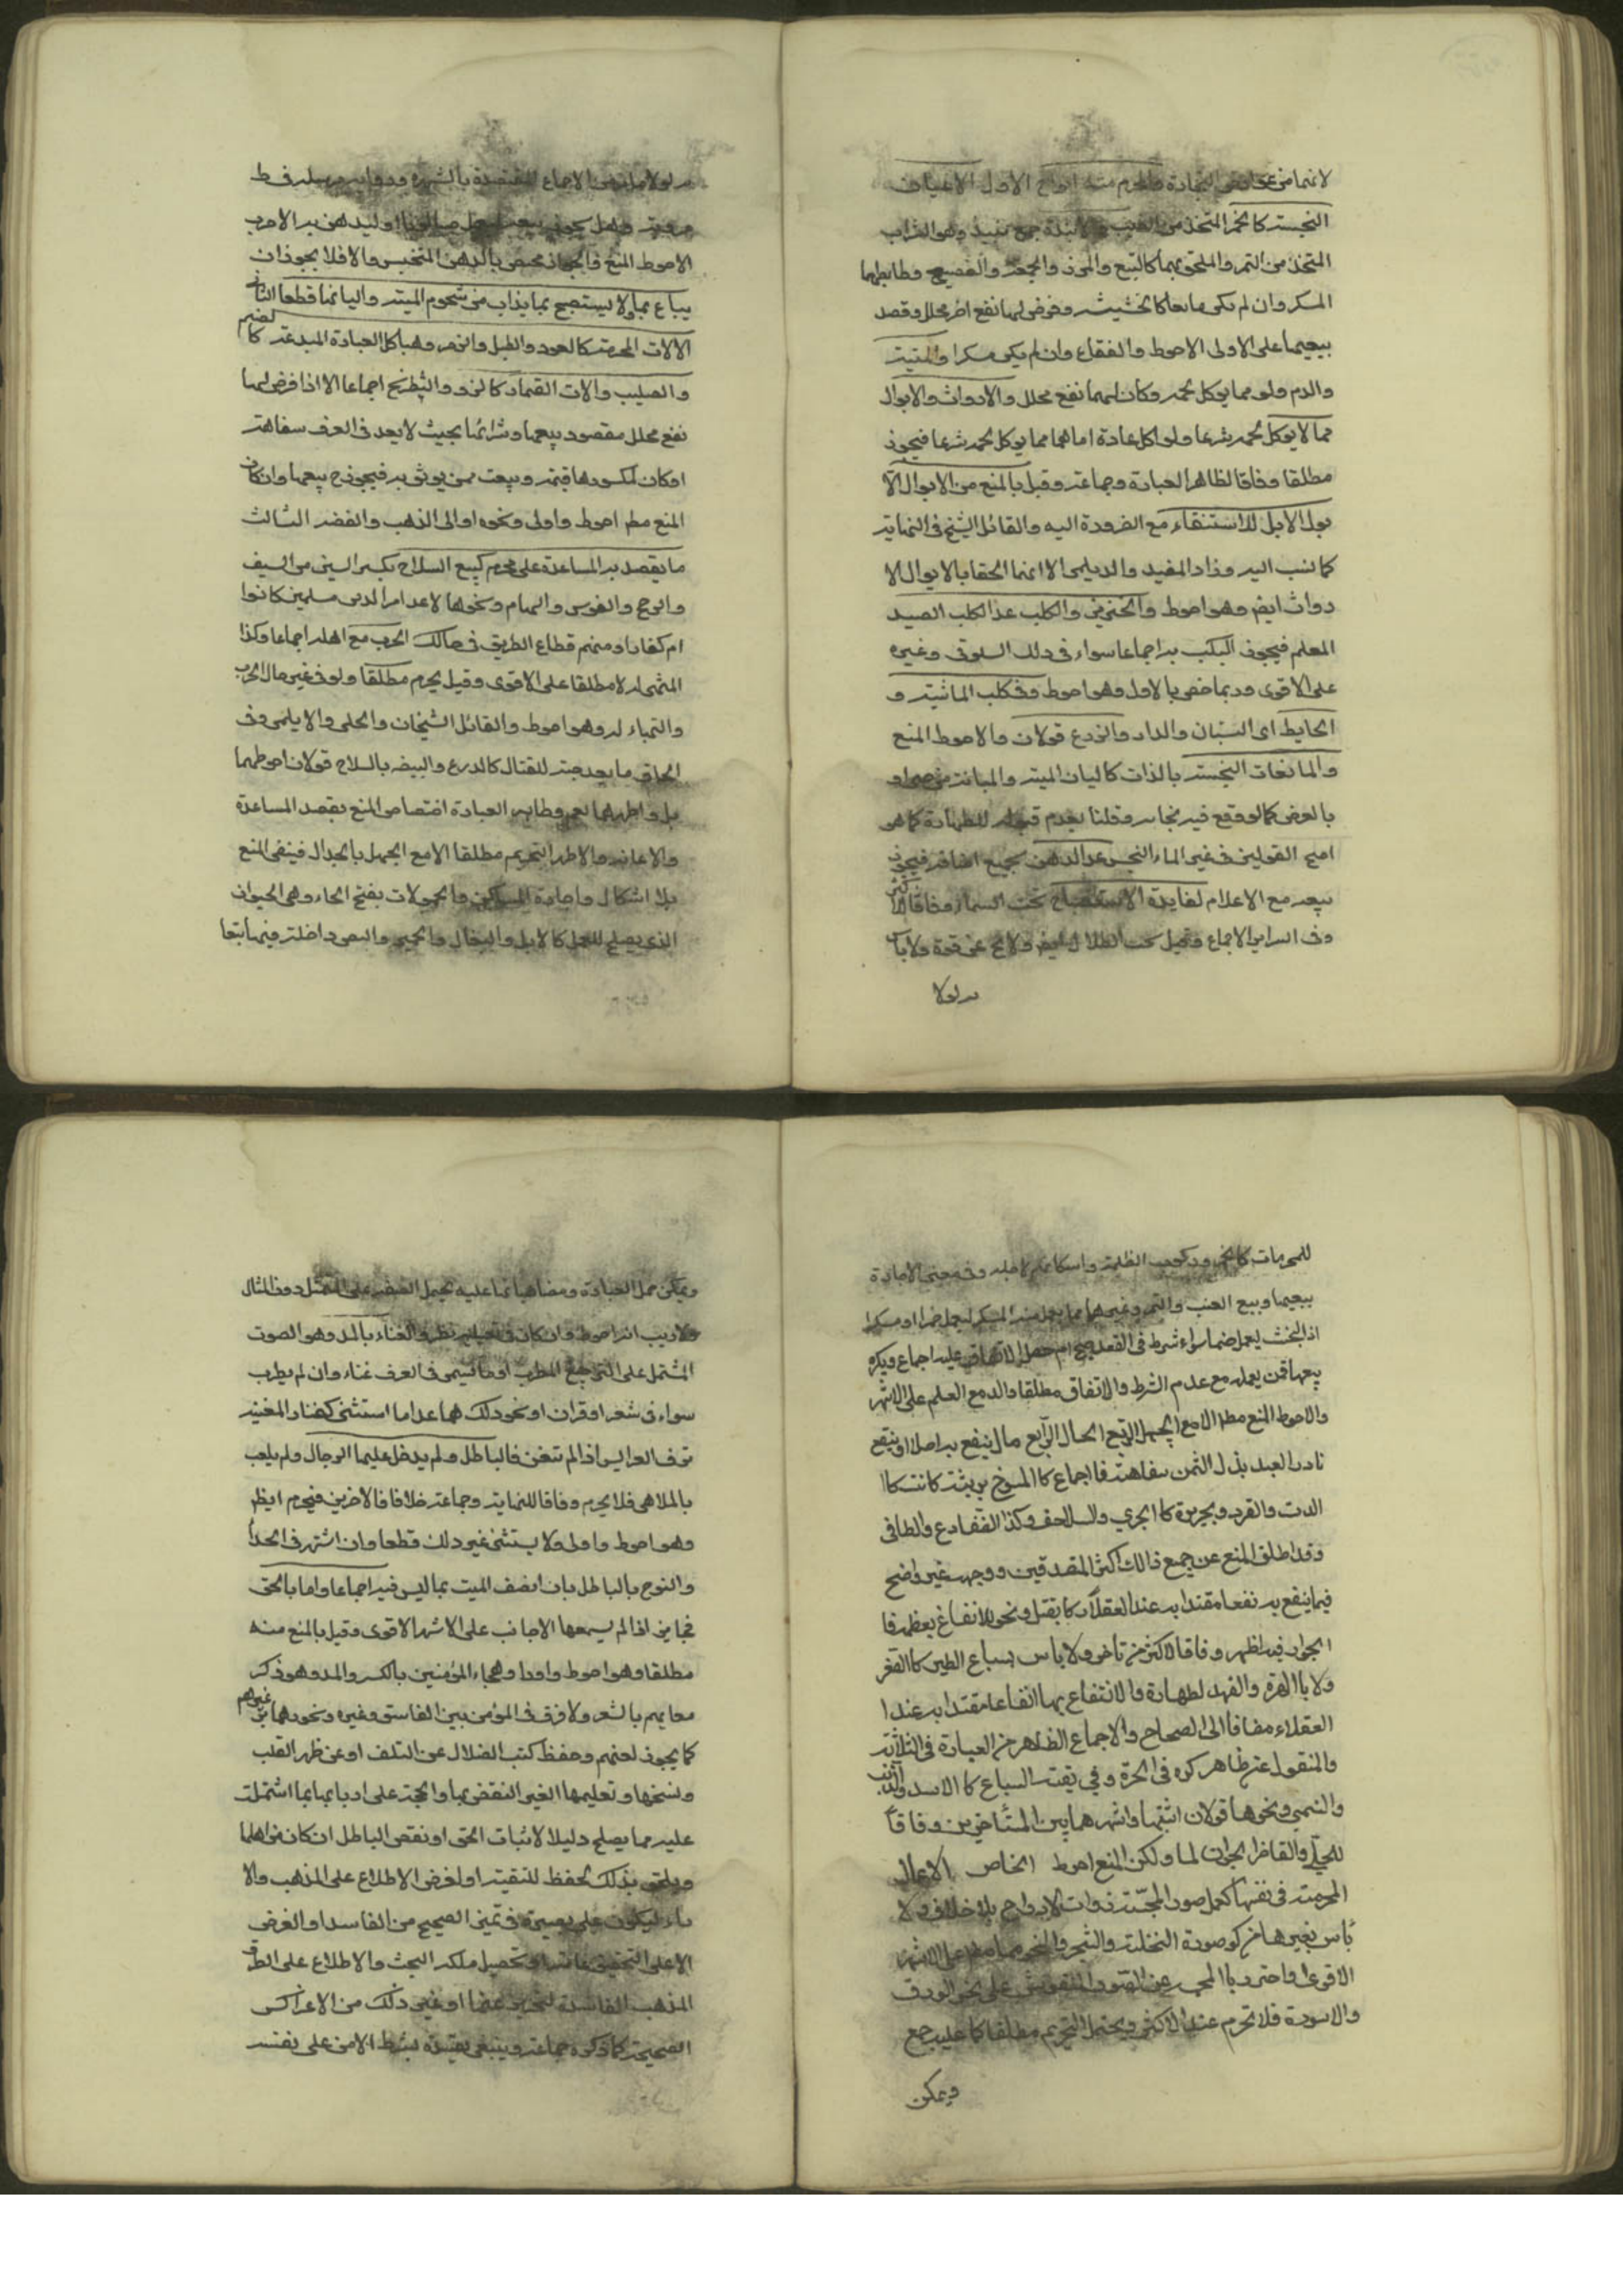 لا نهما من عوارض التجارة والمحرم منه انواع الاول الاعيان
النجسة كالخمر المتخذ من العنب والانبذة جمع نبيذ وهو الشراب
المتخذ من التمر والملحق بهما كالتبع والمزر والجعة والفضيخ وضابطهما
المسكر وان لم يكن مايعا كالحشيشة وفرض لهما نفع اخر محلل وقصد
بيعهما على الاولى الاحوط والفقاع وان لم يكن مسكرا والميتة
والدم ولو مما يوكل لحمه وكان لهما نفع محلل والارواث والابوال
مما لا يوكل لحمه شرعا ولو اكل عادة اما هما مما يوكل لحمه شرعا فيجوز
مطلقا وفاقا لظاهر العبارة وجماعة وقيل بالمنع من الابوال الا
بول الابل للاستشفاء مع الضرورة اليه والقائل الشيخ في النهاية
كما نسب اليه وزاد المفيد والديلمي الا انهما الحقا بالابوال الا
رواث ايضم وهو احوط والخنزير والكلب عدا كلب الصيد
المعلم فيجوز التكسب به اجماعا سواء في ذلك السلوقي وغيره
على الاقوى وربما خص بالاول وهو احوط وفي كلب الماشية و
الحايط اى البستان والدار والزرع قولان والاحوط المنع
والمايعات النجسة بالذات كاليات الميتة والمبانة من حى او
بالعرض كما لو وقع فيه نجاسة وقلنا بعدم قبوله للطهارة كما هو
اصح القولين في غير الماء النجس عدا الدهن بجميع اصنافه فيجوز
بيعه مع الاعلام لفايدة الاستصباح تحت السماء وفاقا للاكثر
وفي السراير الاجماع وقيل تحت الظلال ايضم ولا يخ عن قوة ولا باس
به لولا
به لولا ما مر من الاجماع المعتضدة بالشهرة ورواية مرسلة فط
الاحوط المنع فالجواز مختص بالدهن المتنجس والا فلا يجوز ان
يباع بما ولا يستصبح بما يذاب من شحوم الميتة والياتها قطعا الثاني
الالات المحرمة كالعود والطبل والزمر وهياكل العبادة المبدعة كالصنم
والصليب والات القمار كالنرد والشطرنج اجماعا الا اذا فرض لهما
نفع محلل مقصود بيعها وشرائها بحيث لا يعد في العرف سفاهة
او كان لمكسورها قيمة وبيعت ممن يوثق به فيجوز ح بيعها وان كان
المنع مطم احوط واولى ونحوه اوانى الذهب والفضه الثالث
ما يقصد به المساعدة على محرم كبيع السلاح بكسر السين من السيف
والرمح والقوس والسهام ونحوها لاعداء الدين مسلمين كانوا
ام كفارا ومنهم قطاع الطريق في حالت الحرب مع اهله اجماعا وكذا
التهيء له لا مطلقا على الاقوى وقيل يحرم مطلقا ولو في غير حال الحرب
والتهياء له وهو احوط والقائل الشيخان والحلى والديلمى وفى
الحاق ما يعد جنة للقتال كالدرع والبيضة بالسلاح قولان احوطهما
بل واظهرهما نعم وظاهر العبارة اختصاص المنع بقصد المساعدة
والاعانة والاظهر التحريم مطلقا الا مع الجهل بالحال فينفى المنع
بلا اشكال واجارة المساكن والحمولات بفتح الحاء وهى الحيوان
الذى يصلح للحمل كالابل والبغال والحمير والسفن داخلة فيها تبعا
للمحرمات كالخمر وركوب الظلمة واسكانهم لاجله وفى معنى الاجارة
بيعهما وبيع العنب والتمر وغيرهما مما يعمل منه المسكر ليعمل خمرا او مسكرا
اذا لخشب ليعمل صنما سواء شرط في العقد صريح ام حصل الاتفاق عليه اجماع ويكره
بيعها فمن يعمله مع عدم الشرط والاتفاق مطلقا والد مع العلم على الاشهر
والاحوط المنع مطم الا مع الجهل الرابع الحال الرابع ما لا ينتفع به اصلا او ينتفع
نادرا لعبد بذل الثمن سفاهة فا اجماع كالمسوخ برية كانت كا
الدب والقرد وبحرية كالجري والسلاحف وكذا الضفادع والطافي
وقد اطلق المنع عن جميع ذالك اكثر المتقدمين ووجهه غير واضح
فيما ينتفع به نفعا مقتدا به عند العقلاء كا يقتل ونحو للانتفاع بعظمه فا
الجواز فيه اظهر وفاقا لاكثر من تاخر ولا باس بسباع الطير كالصقر
ولا با الهرة والفهد لطهارة والانتفاع بها انتفاعا معتدا به عند ا
العقلاء مضافا الى الصحاح والاجماع الظاهر من العبارة فى الثلاثة
والمنقول عن ظاهر كره فى الهرة وفي بقية السباع كالاسد والذئب
والنمر ونحوها قولان اثبتهما واشهرهما بين المتاخرين وفاقا
للحلي والقاضى الجواز لما ولكن المنع احوط الخاص الاعمال
المحرمة فى نفسها كعمل صور المجسمة ذوات الارواح بلا خلاف ولا
بأس بغيرها من كصورة النخلة والشجر والنحوهما مطم على الاشهر
الاقوى واحترز بالمجسمة عن الصور المنقوش على نحو الورق
والاسودة فلا تحرم عند الاكثر ويحتمل التحريم مطلقا كما عليه جمع
ويمكن
ويمكن حمل العبارة ومضاهياتها عليه بحمل الصفة على الممثل دون المثال
ولا ريب انه احوط وان كان فى تعيينه نظر والغناء بالمد وهو الصوت
المشتمل على الترجيع المطرب او ما يسمى فى العرف غناء وان لم يطرب
سواء فى شعر او قران او نحو ذلك هما عدا ما استثنى كغناء المغنية
تزف العرايس اذا لم تتغن فا الباطل ولم يدخل عليها الرجال ولم يلعب
بالملاهى فلا يحرم وفاقا للنهاية وجماعة خلافا فالاخرين فيحرم ايظم
وهو احوط واولى ولا يستثنى غير ذلك قطعا وان اشتهر فى الحداء
والنوح بالباطل بان تصف الميت بما ليس فيه اجماعا واما بالحق
فجايز اذا لم يسمعها الاجانب على الاشهر الاقوى وقيل بالمنع منه
مطلقا وهو احوط واودا وهجاء المؤمنين بالكسر والمد وهو ذكر
معايبهم بالشعر ولا فرق فى المؤمن بين الفاسق وغيره ونحوهما بن غيرهم
كما يجوز لعنهم وحفظ كتب الضلال عن التلف او عن ظهر القلب
ونسخها وتعليمها الغير النقض بها والحجة على اربابها بما اشتملت
عليه مما يصلح دليلا لاثبات الحق او نقض الباطل ان كان من اهلها
ويلحق بذلك لحفظ للتقية او لغرض الاطلاع على المذهب والا
راء ليكون على بصيرة فى تميز الصحيح من الفاسد او الغرض
الاعلى التحقيق عامة او تحصيل ملكة البحث والاطلاع على الطرق
المذهب الفاسدة لتحرز عنها او غير ذلك من الاغراض
الصحيحة كما ذكره جماعة وينبغى تقييده بشرط الامن على نفسه